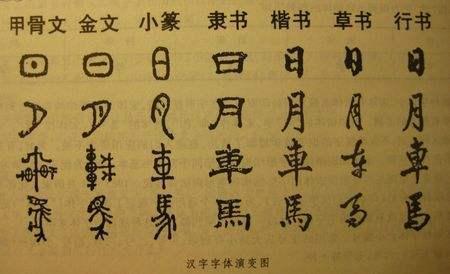 甲骨文 金文 小篆 隶书 楷书 草书 行书
日 日 日 日 日 日 日
月 月 月 月 月 月 月
車 車 車 車 車 車 車
馬 馬 馬 馬 馬 馬 馬
汉字字体演变图